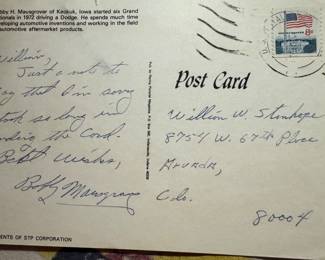 bby H. Mausgrover of Keokuk, Iowa started six Grand
ationals in 1972 driving a Dodge. He spends much time
eveloping automotive inventions and working in the field
automotive aftermarket products.
William,
Just a note to
say that I'm sorry
took so long in
the Card.
Best Wishes,
Bobby Mausgrover
ENTS OF STP CORPORATION
Post Card
8c
William W. Stanhope
8754 W. 67th Place
Arvada,
Colo.
80004